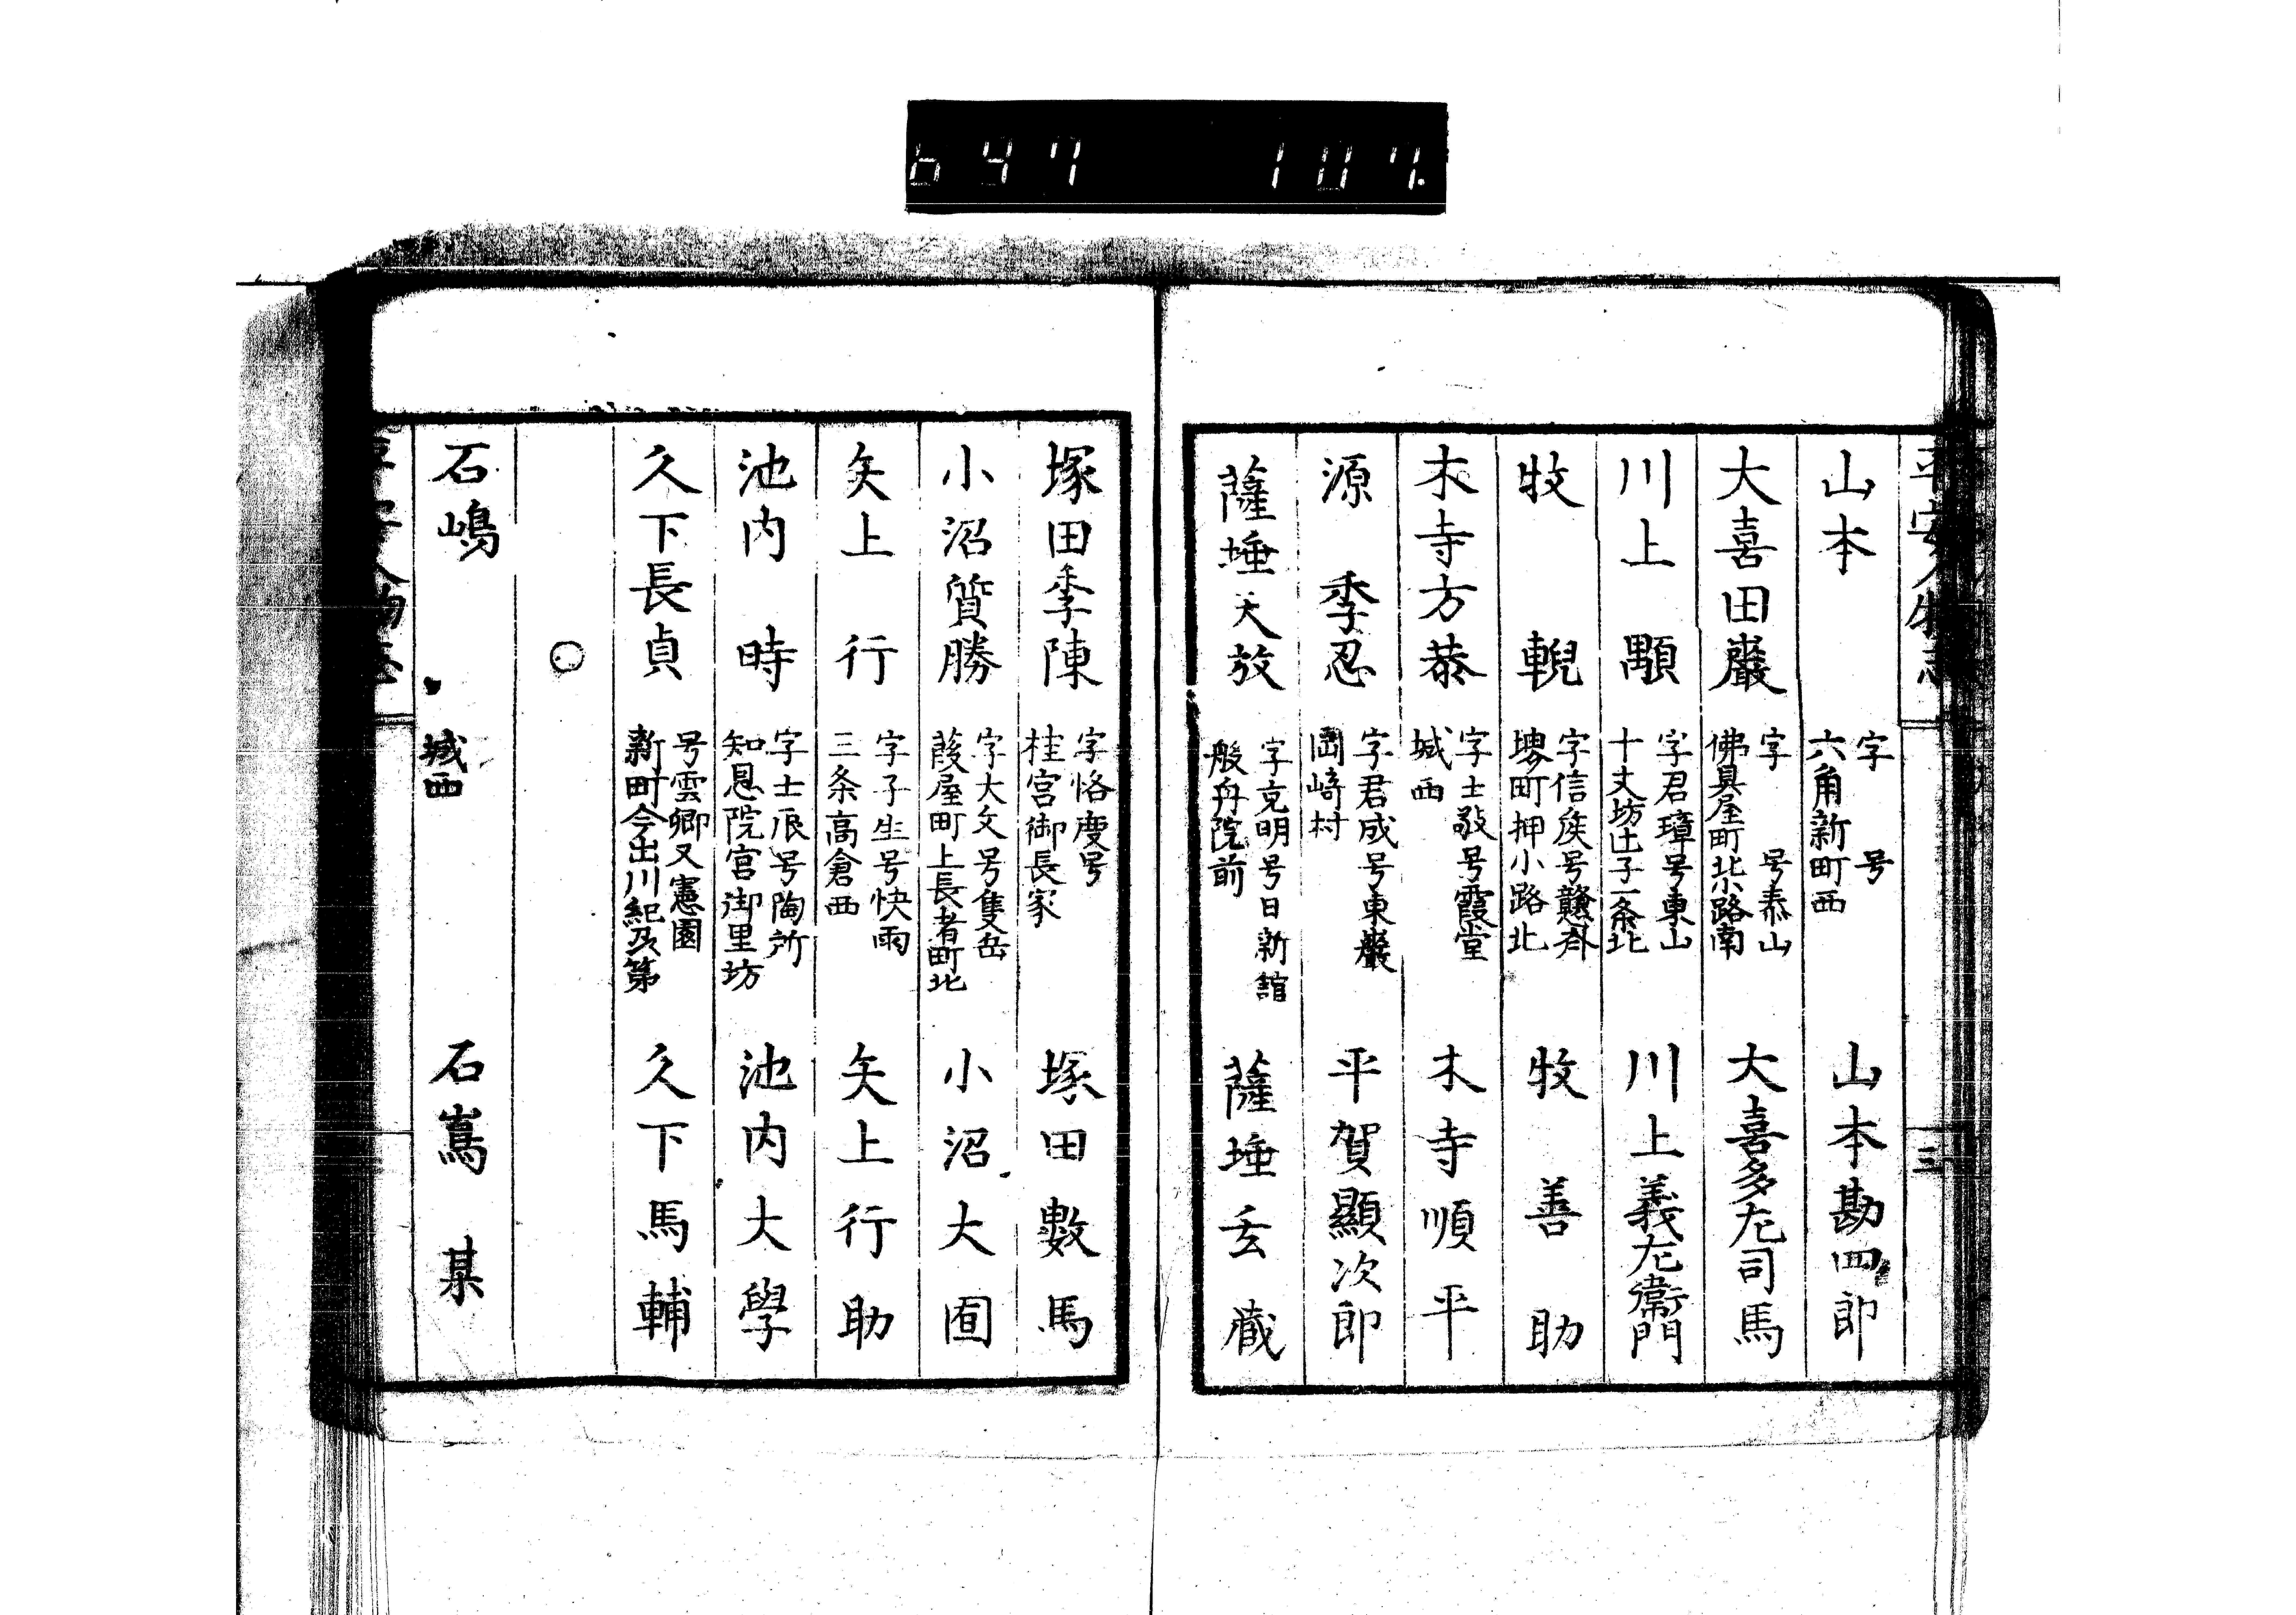 697 107
平安人物志
三
山本
字 号
六角新町西
山本勘四郎
大喜田巖
字 号泰山
佛具屋町北小路南
大喜多左司馬
川上顒
字君璋号東山
十丈坊辻子一条北
川上義左衛門
牧輗
字信矦号贛斎
堺町押小路北
牧善助
木寺方恭
字士敬号霞堂
城西
木寺順平
源季忍
字君成号東巖
岡崎村
平賀顯次郎
薩埵天放
字克明号日新舘
般舟院前
薩埵玄蔵
塚田季陳
字恪慶号
桂宮御長家
塚田數馬
小沼質勝
字大文号隻岳
葭屋町上長者町北
小沼大囿
矢上行
字子生号快雨
三条高倉西
矢上行助
池内時
字士辰号陶所
知恩院宮御里坊
池内大學
久下長貞
号雲卿又憲園
新町今出川紀及第
久下馬輔
○
石嶋
城西
石嶌某